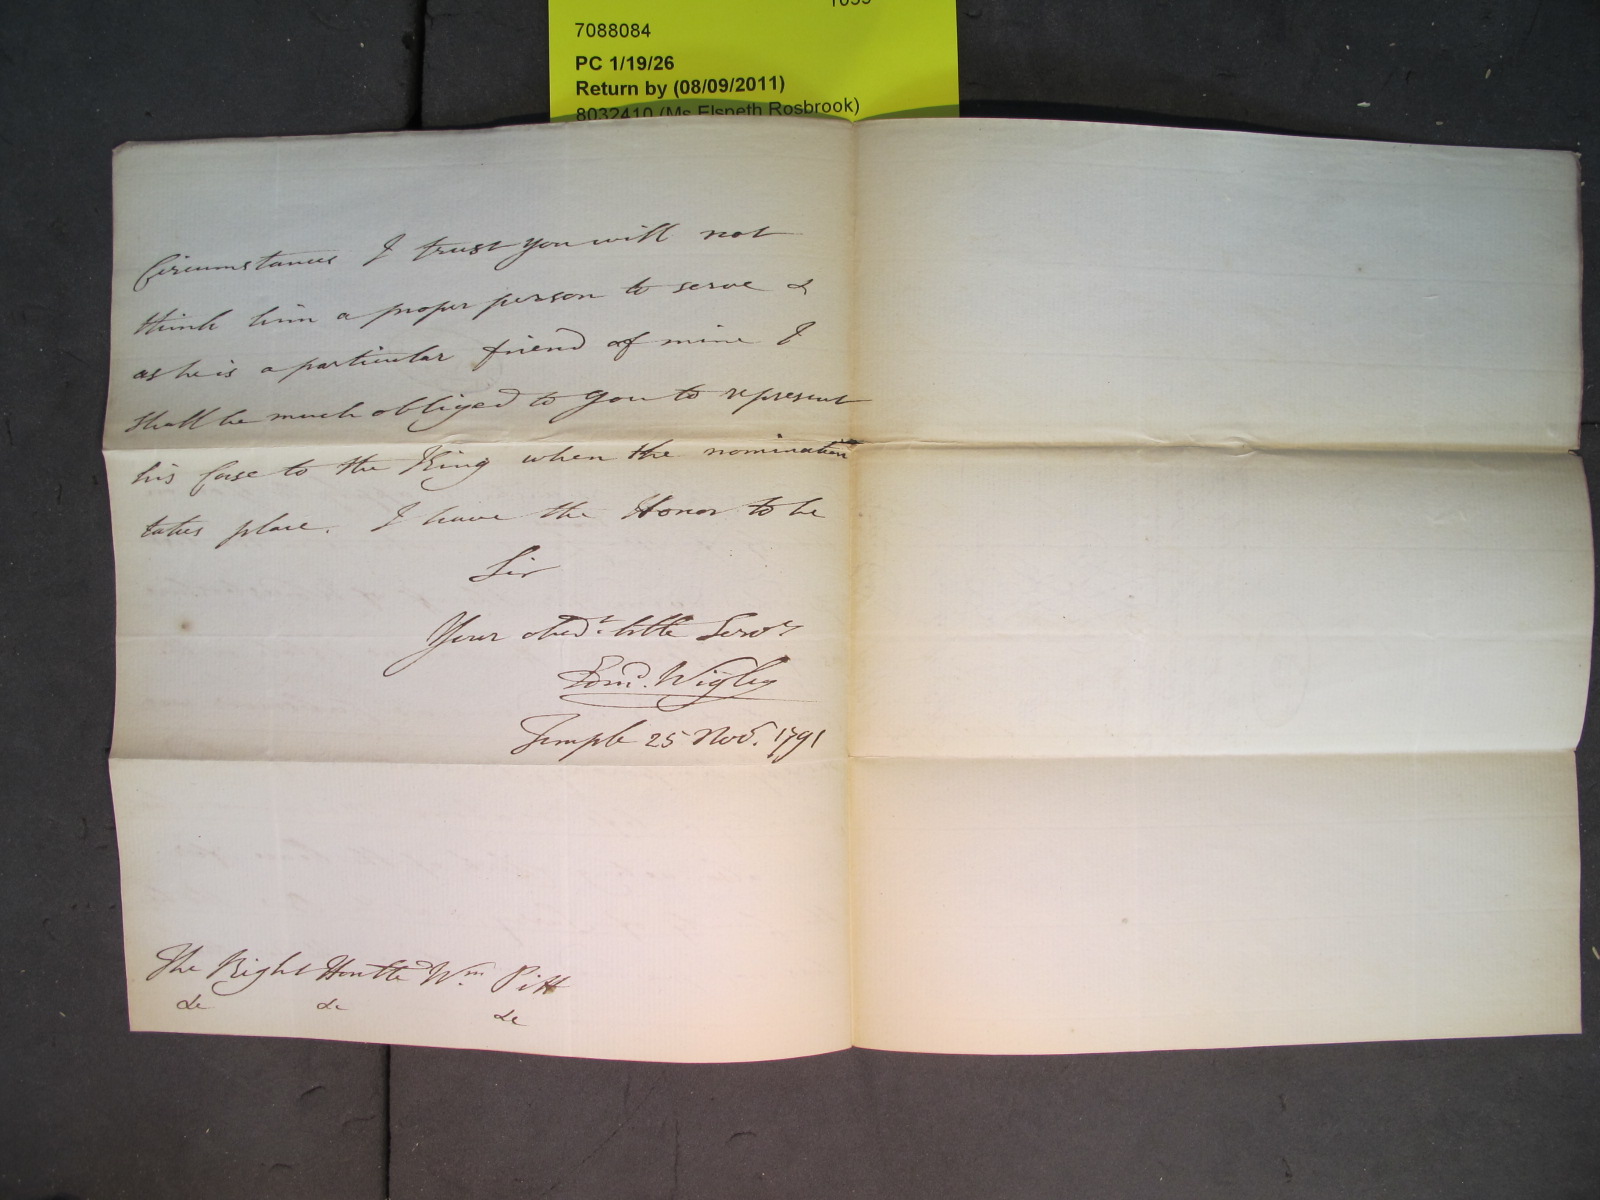 7088084
PC 1/19/26
Return by (08/09/2011)
8032410 (Ms Elspeth Rosbrook)
Circumstances I trust you will not
think him a proper person to serve &
as he is a particular friend of mine I
shall be much obliged to you to represent
his Case to the King when the nomination
takes place. I have the Honor to be
Sir
Your obedt. hble Servt
Edmd. Wigley
Temple 25 Nov. 1791
The Right Honble Wm. Pitt
&c &c
&c